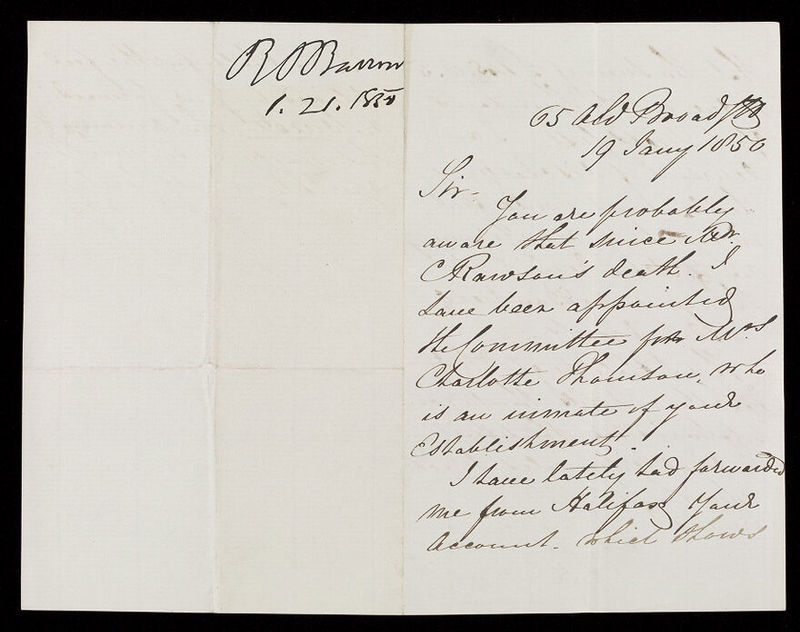 R Barron
1. 21. 1850
65 Old Broad St
19 Jany 1850
Sir -
You are probably
aware that since Mr.
C Rawson's death. I
have been appointed
the Committee for Mrs
Charlotte Thomson, who
is an inmate of your
Establishment.
I have lately had forwarded
me from Halifax Your
Account. which shows